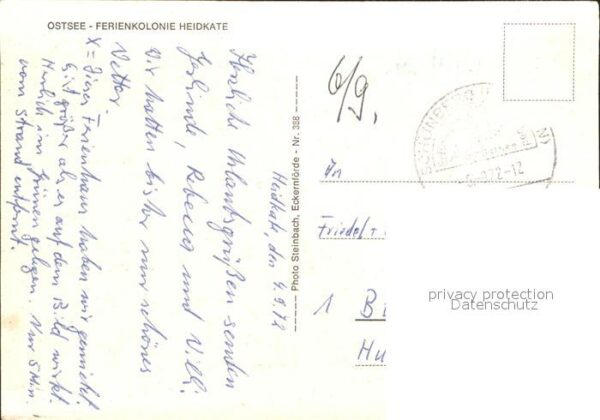 OSTSEE - FERIENKOLONIE HEIDKATE
Heidkate, den 4.9.72
Herzliche Urlaubsgrüßen senden
Gerlinde, Rebecca und Willi.
Wir hatten bisher nur schönes
Wetter.
X = dieses Ferienhaus haben wir gemietet.
Ist größer als es auf dem Bild wirkt.
Herrlich im Grünen gelegen. Nur 5 Min.
vom Strand entfernt.
Photo Steinbach, Eckernförde - Nr. 388
6/9.
72-12
An
Friedel +
1 B
Hu
privacy protection
Datenschutz